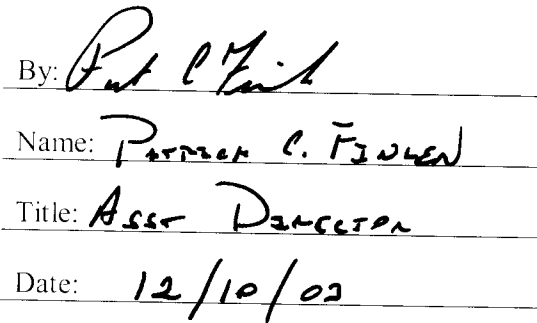 By: Pat C Finl
Name: Patrick C. Finlen
Title: Asst Director
Date: 12/10/02